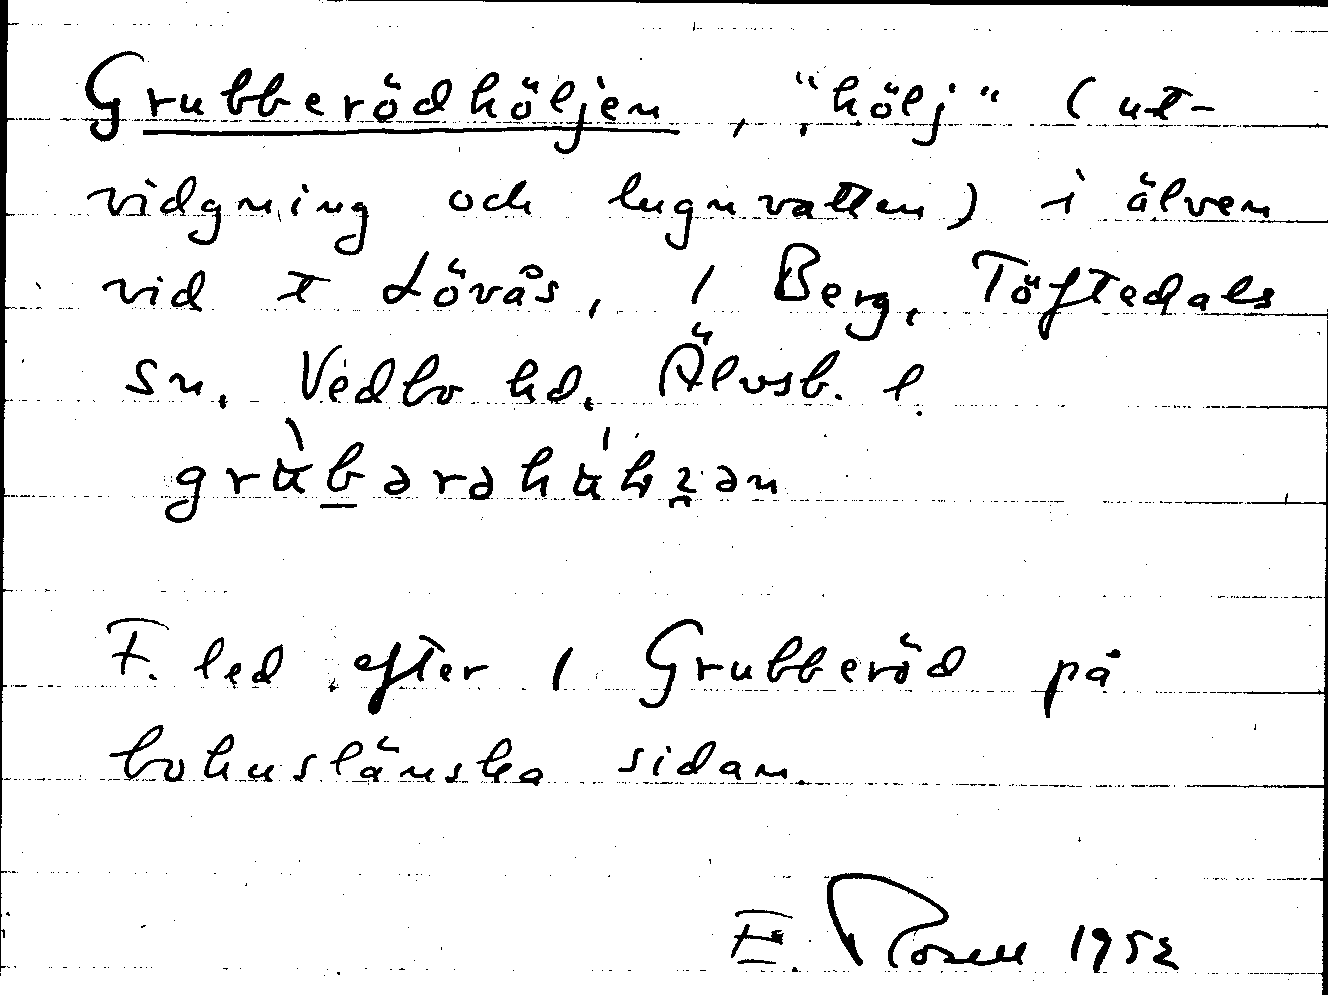 Grubberödhöljen, "hölj" (ut-
vidgning och lugnvatten) i älven
vid t Lövås, / Berg, Töftedals
sn. Vedbo hd. Älvsb. l.
F. led efter / Grubberöd på
bohuslänska sidan.
E. Rosell 1952